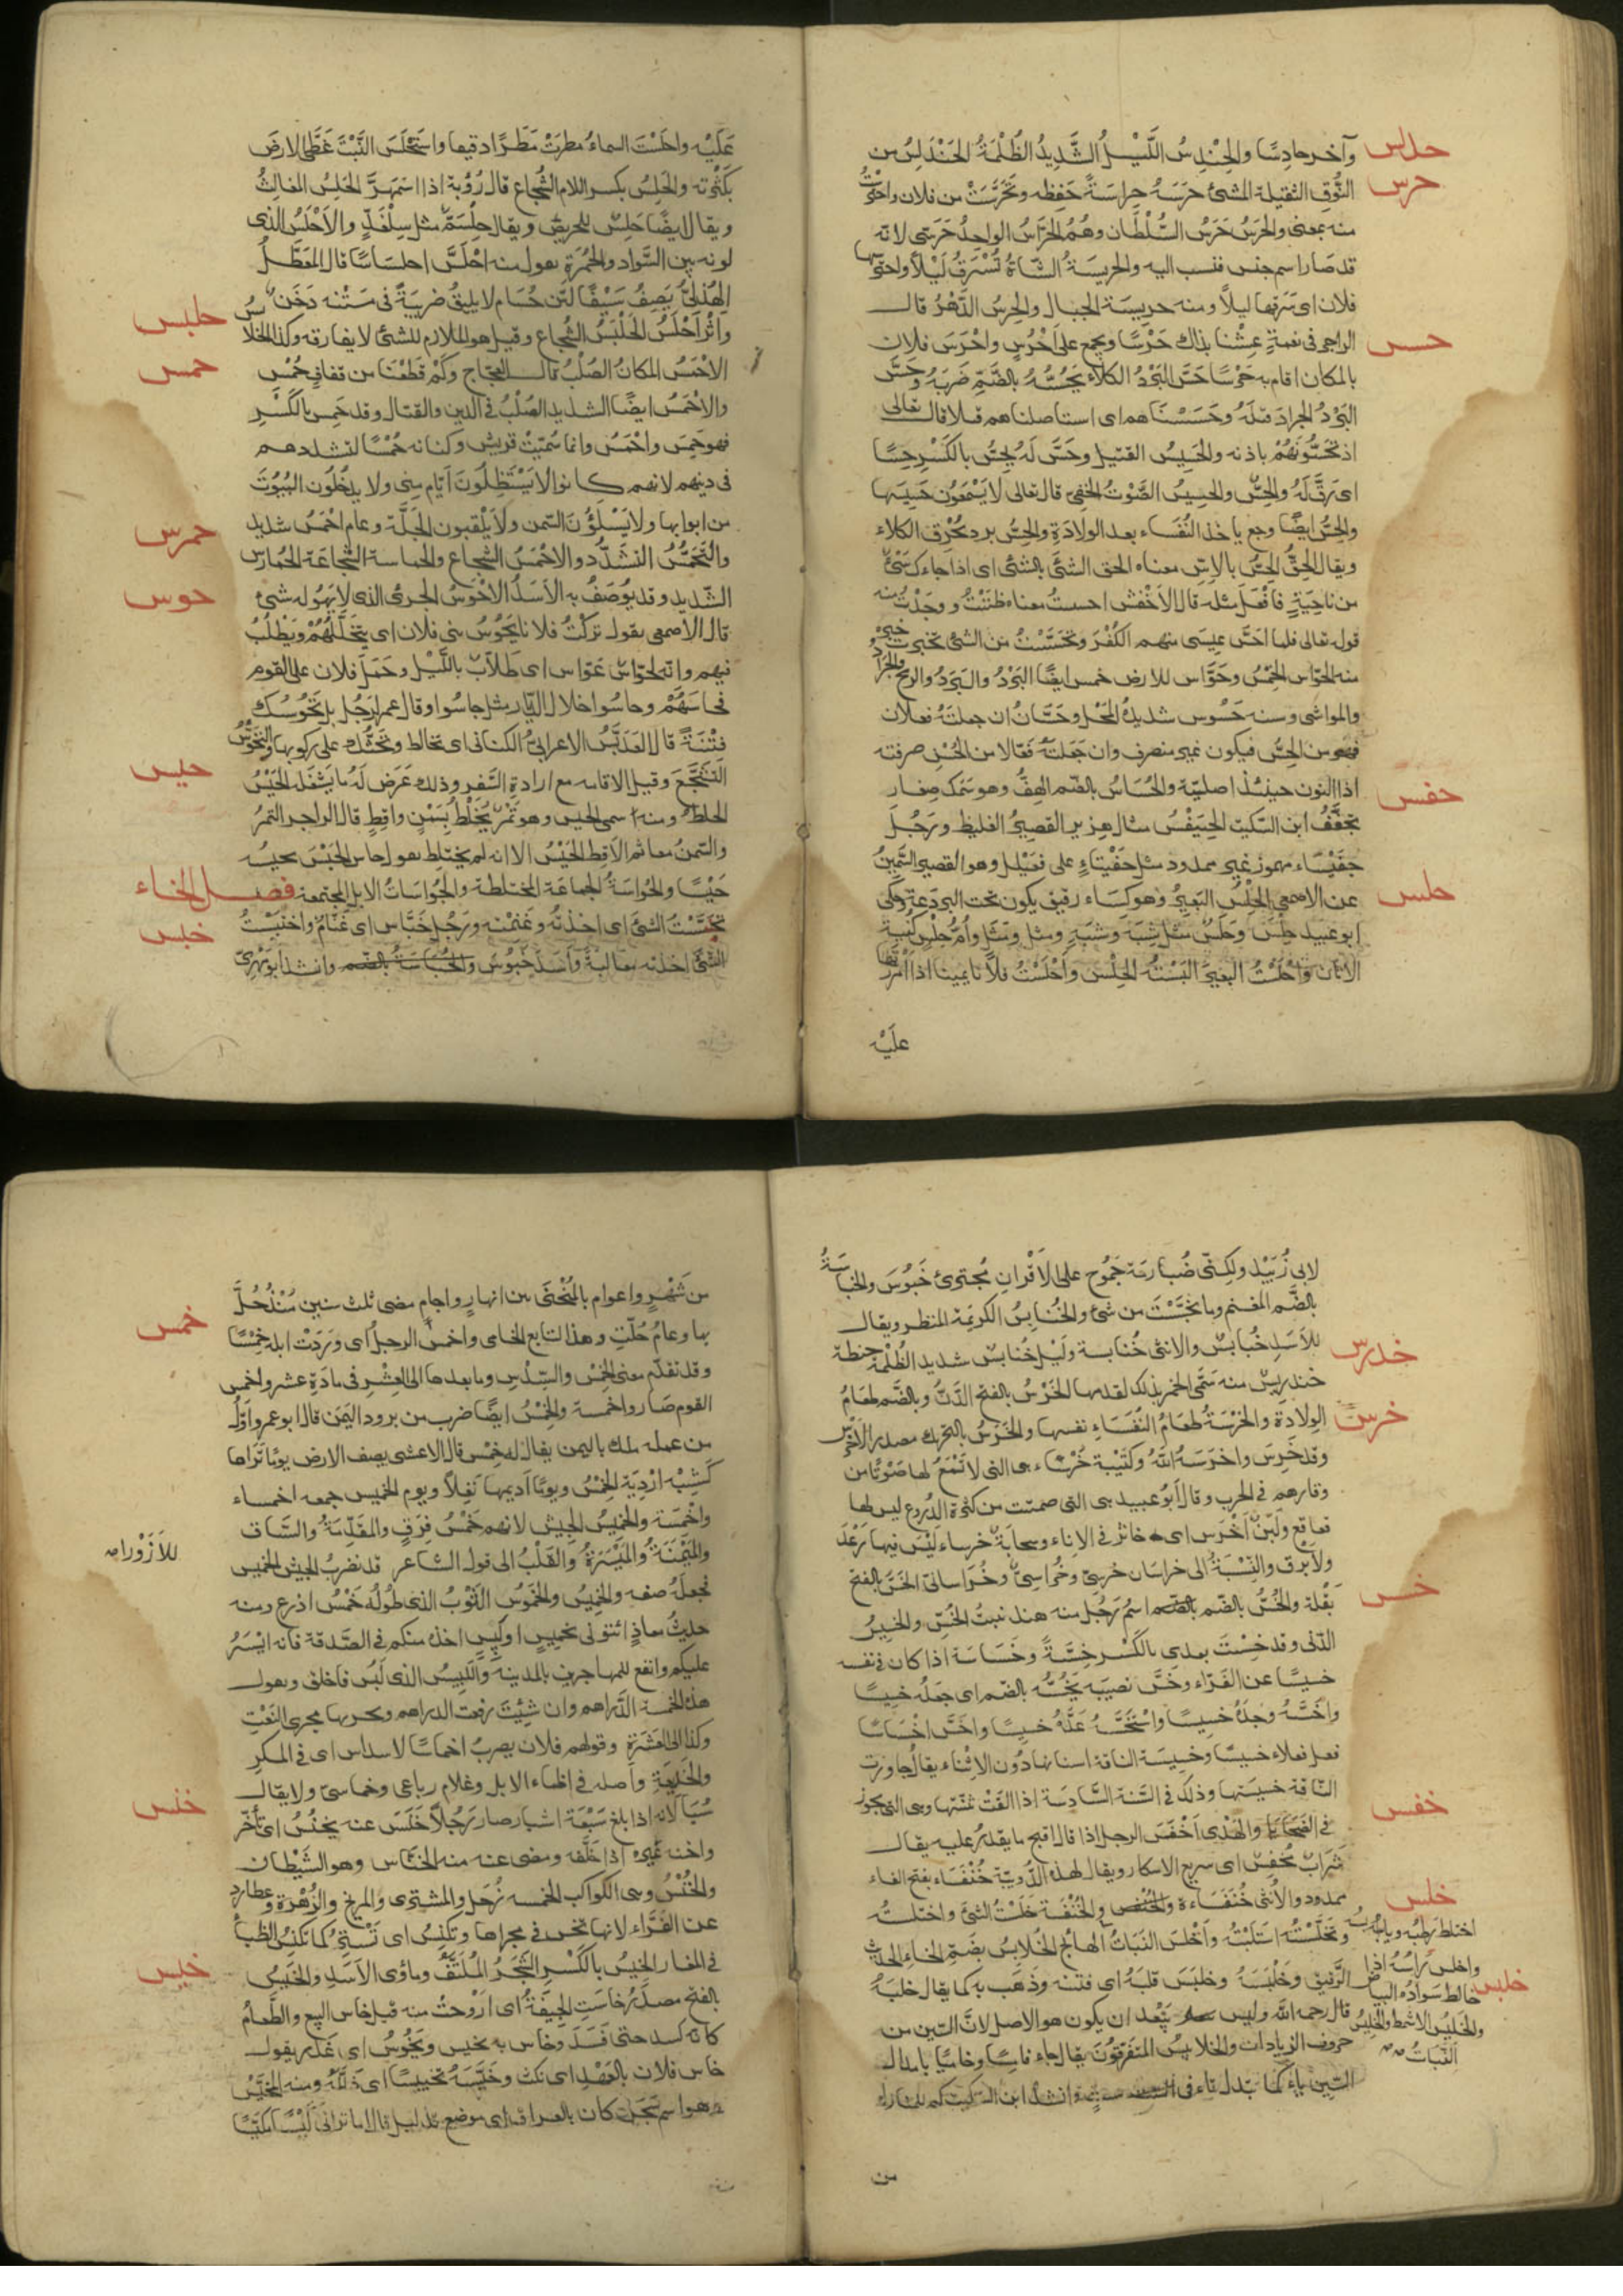 حدلس وآخر حادسا والحندس الليل الشديد الظلمة الحندلس من
حرس النوق الثقيلة المشي حرسه حراسة حفظه وتحرست من فلان واحترست
منه بمعنى والحرس حرس السلطان وهم الحراس الواحد حرسي لانه
قد صار اسم جنس فنسب اليه والحريسة الشاة تسرق ليلا واحترسها
فلان اى سرقها ليلا ومنه حريسة الجبال والحرس الدهر قال
حسس الراجز فى نعمة عشنا بذاك حرسا ويجمع على أحرس واحرس فلان
بالمكان اقام به حرسا حس البرد الكلاء يحسه بالضم ضربه وحس
البرد الجراد قتله وحسسناهم اى استاصلناهم قتلا قال تعالى
اذ تحسونهم باذنه والحسيس القتيل وحس له يحس بالكسر حسا
اى رق له والحس والحسيس الصوت الخفى قال تعالى لا يسمعون حسيسها
والحس ايضا وجع ياخذ النفساء بعد الولادة والحس برد يحرق الكلاء
ويقال الحق الحس بالاس معناه الحق الشئ بالشئ اى اذا جاءك شئ
من ناحية فافعل مثله قال الاخفش احسست معناه ظننت ووجدت منه
قوله تعالى فلما احس عيسى منهم الكفر وتحسست من الشئ تخبرت خبره
منه الحواس الخمس وحواس للارض خمس ايضا البرد والبرد والريح والجراد
والمواشى وسنة حسوس شديدة المحل وحسان ان جعلته فعلان
فهو من الحس فيكون غير منصرف وان جعلته فعالا من الحسن صرفته
حفس اذ النون حينئذ اصلية والحساس بالضم الهف وهو سمك صغار
يجفف ابن السكيت الحيفس مثال هزبر القصير الغليظ ورجل
حفيساء مهموز غير ممدود مثل حفيتاء على فعيلل وهو القصير السمين
حلس عن الاصمعى الحلس للبعير وهو كساء رقيق يكون تحت البردعة حكى
ابو عبيد حلس وحلس مثل شبه وشبه ومثل ومثل وام حلس كنية
الاتان واحلست البعير البسته الحلس واحلست فلانا يمينا اذا امررتها
عليه
عليه واحلست السماء مطرت مطرا دقيقا واستحلس النبت غطى الارض
بكثرته والحلس بكسر اللام الشجاع قال رؤبة اذا اسمهر الحلس المغالث
ويقال ايضا حلس للحريص ويقال حلسم مثل سلغد والاحلس الذى
لونه بين السواد والحمرة يقول منه احلس احلساسا قال المعطل
الهذلى يصف سيفا لين حسام لا يليق ضريبة فى متنه دخن
حلبس واثر احلس الحلبس الشجاع وقيل هو الملازم للشئ لا يفارقه وكذا الحلابس
حمس الاحمس المكان الصلب قال العجاج وكم قطعنا من قفاف حمس
والاحمس ايضا الشديد الصلب فى الدين والقتال وقد حمس بالكسر
فهو حمس واحمس وانما سميت قريش وكنانة حمسا لتشددهم
فى دينهم لانهم كانوا لا يستظلون ايام منى ولا يدخلون البيوت
من ابوابها ولا يسلؤن السمن ولا يلقبون الجلة وعام احمس شديد
حمرس والتحمس التشدد والاحمس الشجاع والحماسة الشجاعة الحمارس
حوس الشديد وقد يوصف به الاسد الاحوس الجرئ الذى لا يهوله شئ
قال الاصمعى يقول تركت فلانا يحوس بنى فلان اى يتخللهم ويطلب
فيهم وانه لحواس عواس اى طلاب بالليل وحمل فلان على القوم
فحاسهم وحاسوا خلال الديار مثل جاسوا وقال عمر لرجل بل تحوسك
فتنة قال العدبس الاعرابى الكنانى اى تخالط وتحثك على ركوبها والتحوس
حيس التشجع وقيل الاقامة مع ارادة السفر وذلك عرض له ما يشغله الحيس
الخلط ومنه سمى الحيس وهو تمر يخلط بسمن واقط قال الراجز التمر
والسمن معا ثم الاقط الحيس الا انه لم يختلط يقول حاس الحيس يحيسه
حيسا والحواسة الجماعة المختلطة والحواسات الابل المجتمعة فصل الخاء
خبس تخبست الشئ اى اخذته وغنمته ورجل خباس اى غنام واختبست
الشئ اخذته مغالبة واسد خبوس والخباسة بالضم وانشد ابو مهدى
لابى زبيد ولكنى ضبارمة جموح على الاقران مجترئ خبوس والخباسة
بالضم المغنم وما تخبست من شئ والخنابس الكريه المنظر ويقال
خدرس للاسد خنابس والانثى خنابسة وليل خنابس شديد الظلمة حنطة
خندريس منه سمى الخمر بذلك لقدمها الخرس بالفتح الدن وبالضم طعام
خرس الولادة والخرسة طعام النفساء نفسها والخرس بالتحريك مصدر الاخرس
وقد خرس واخرسه الله وكتيبة خرساء هى التى لا تسمع لها صوتا من
وقارهم فى الحرب وقال ابو عبيد هى التى صمتت من كثرة الدروع ليس لها
قعاقع ولبن اخرس اى خاثر فى الاناء وسحابة خرساء ليس فيها رعد
ولا برق والنسبة الى خراسان خرسى وخراسى وخراسانى الخس بالفتح
خسس بقلة والخس بالضم اسم رجل منه هند بنت الخس والخسيس
الدنى وقد خسست بعدى بالكسر خسة وخساسة اذا كان فى نفسه
خسيسا عن الفراء وخس نصيبه يخسه بالضم اى جعله خسيسا
واخسه وجده خسيسا واستخسه عده خسيسا واخس اخساسا
فعل فعلا خسيسا وخسيسة الناقة اسنانها دون الاثناء يقال جاوزت
الناقة خسيستها وذلك فى السنة السادسة اذا القت ثنيتها وهى التى يجوز
خفس فى الضحايا والهدى اخفس الرجل اذا قال اقبح ما يقدر عليه يقال
شراب مخفس اى سريع الاسكار ويقال لهذه الدويبة خنفساء بفتح الفاء
خلس ممدود والانثى خنفساءة والخنفس والخنفسة خلست الشئ واختلسته
وتخلسته استلبته واخلس النبات الهائج الخلابس بضم الخاء الحديث
اختلط رطبه ويابسه
واخلس رأسه اذا
خالط سواده البياض
والخليس الاشمط والخليس
النبات
خلبس الرقيق وخلبسه وخلبس قلبه اى فتنه وذهب به كما يقال خلبه
قال رحمه الله وليس يبعد ان يكون هو الاصل لان السين من
حروف الزيادات والخلابيس المتفرقون يقال جاء خامسا وخاميا بابدال
السين ياء كما تبدل تاء فى وانشد ابن السكيت كم للمنازل
من
من شهر واعوام بالمنحنى بين انهار واجام مضى ثلث سنين منذ حل
خمس بها وعام حلت وهذا التابع الخامى واخمس الرجل اى وردت ابله خمسا
وقد تقدم معنى الخمس والسدس وما بعدها الى العشر فى مادة عشر واخمس
القوم صاروا خمسة والخمس ايضا ضرب من برود اليمن قال ابو عمرو اول
من عمله ملك باليمن يقال له خمس قال الاعشى يصف الارض يوما تراها
كشبه اردية الخمس ويوما اديمها نغلا ويوم الخميس جمعه اخمساء
واخمسة والخميس الجيش لانهم خمس فرق والمقدمة والساق
والميمنة والميسرة والقلب الى قول الشاعر قد نضرب الجيش الخميس
للازورا
فجعله صفة والخميس والخموس الثوب الذى طوله خمس اذرع ومنه
حديث معاذ ائتونى بخميس او لبيس اخذه منكم فى الصدقة فانه ايسر
عليكم وانفع للمهاجرين بالمدينة واللبيس الذى لبس فاخلق ويقول
هذه الخمسة الدراهم وان شئت رفعت الدراهم ويجريها مجرى النعت
وكذا الى العشرة وقولهم فلان يضرب اخماسا لاسداس اى فى المكر
والخديعة واصله فى اظماء الابل وغلام رباعى وخماسى ولا يقال
خنس لانه اذا بلغ سبعة اشبار صار رجلا خنس عنه يخنس اى تأخر
واخنسه غيره اذا خلفه ومضى عنه منه الخناس وهو الشيطان
والخنس وهى الكواكب الخمسة زحل والمشترى والمريخ والزهرة وعطارد
عن الفراء لانها تخنس فى مجراها وتكنس اى تستتر كما تكنس الظباء
خيس فى المغار الخيس بالكسر الشجر الملتف وماوى الاسد والخيس
بالفتح مصدر خاست الجيفة اى اروحت منه قيل خاس البيع والطعام
كانه كسد حتى فسد وخاس به يخيس ويخوس اى غدر يقول
خاس فلان بالعهد اى نكث وخيسه تخييسا اى ذلله ومنه المخيس
وهو اسم سجن كان بالعراق اى موضع تذليل قال اما ترانى كيسا مكيسا